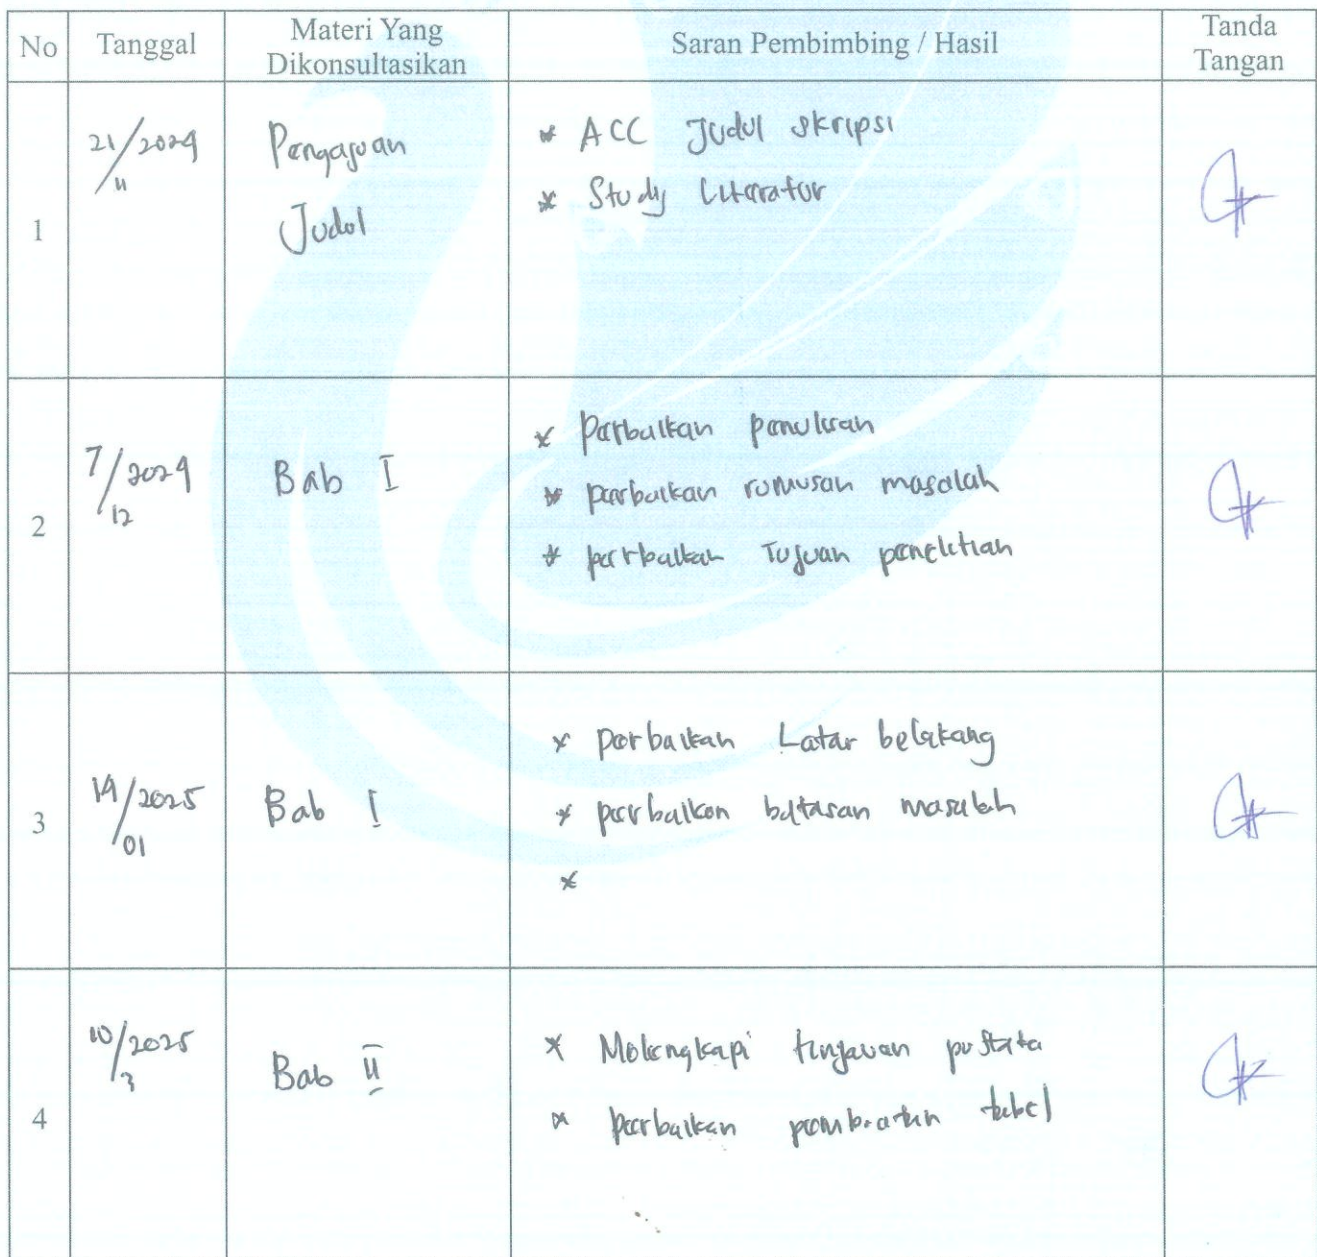 No Tanggal Materi Yang Dikonsultasikan Saran Pembimbing / Hasil Tanda Tangan
1
21/11 2024
Pengajuan
Judul
* ACC Judul skripsi
* Study Literatur
2
7/12 2024
Bab I
* Perbaikan penulisan
* perbaikan rumusan masalah
* perbaikan Tujuan penelitian
3
14/01 2025
Bab I
* perbaikan Latar belakang
* perbaikan batasan masalah
*
4
10/3 2025
Bab II
* Melengkapi tinjauan pustaka
* perbaikan pembuatan tabel